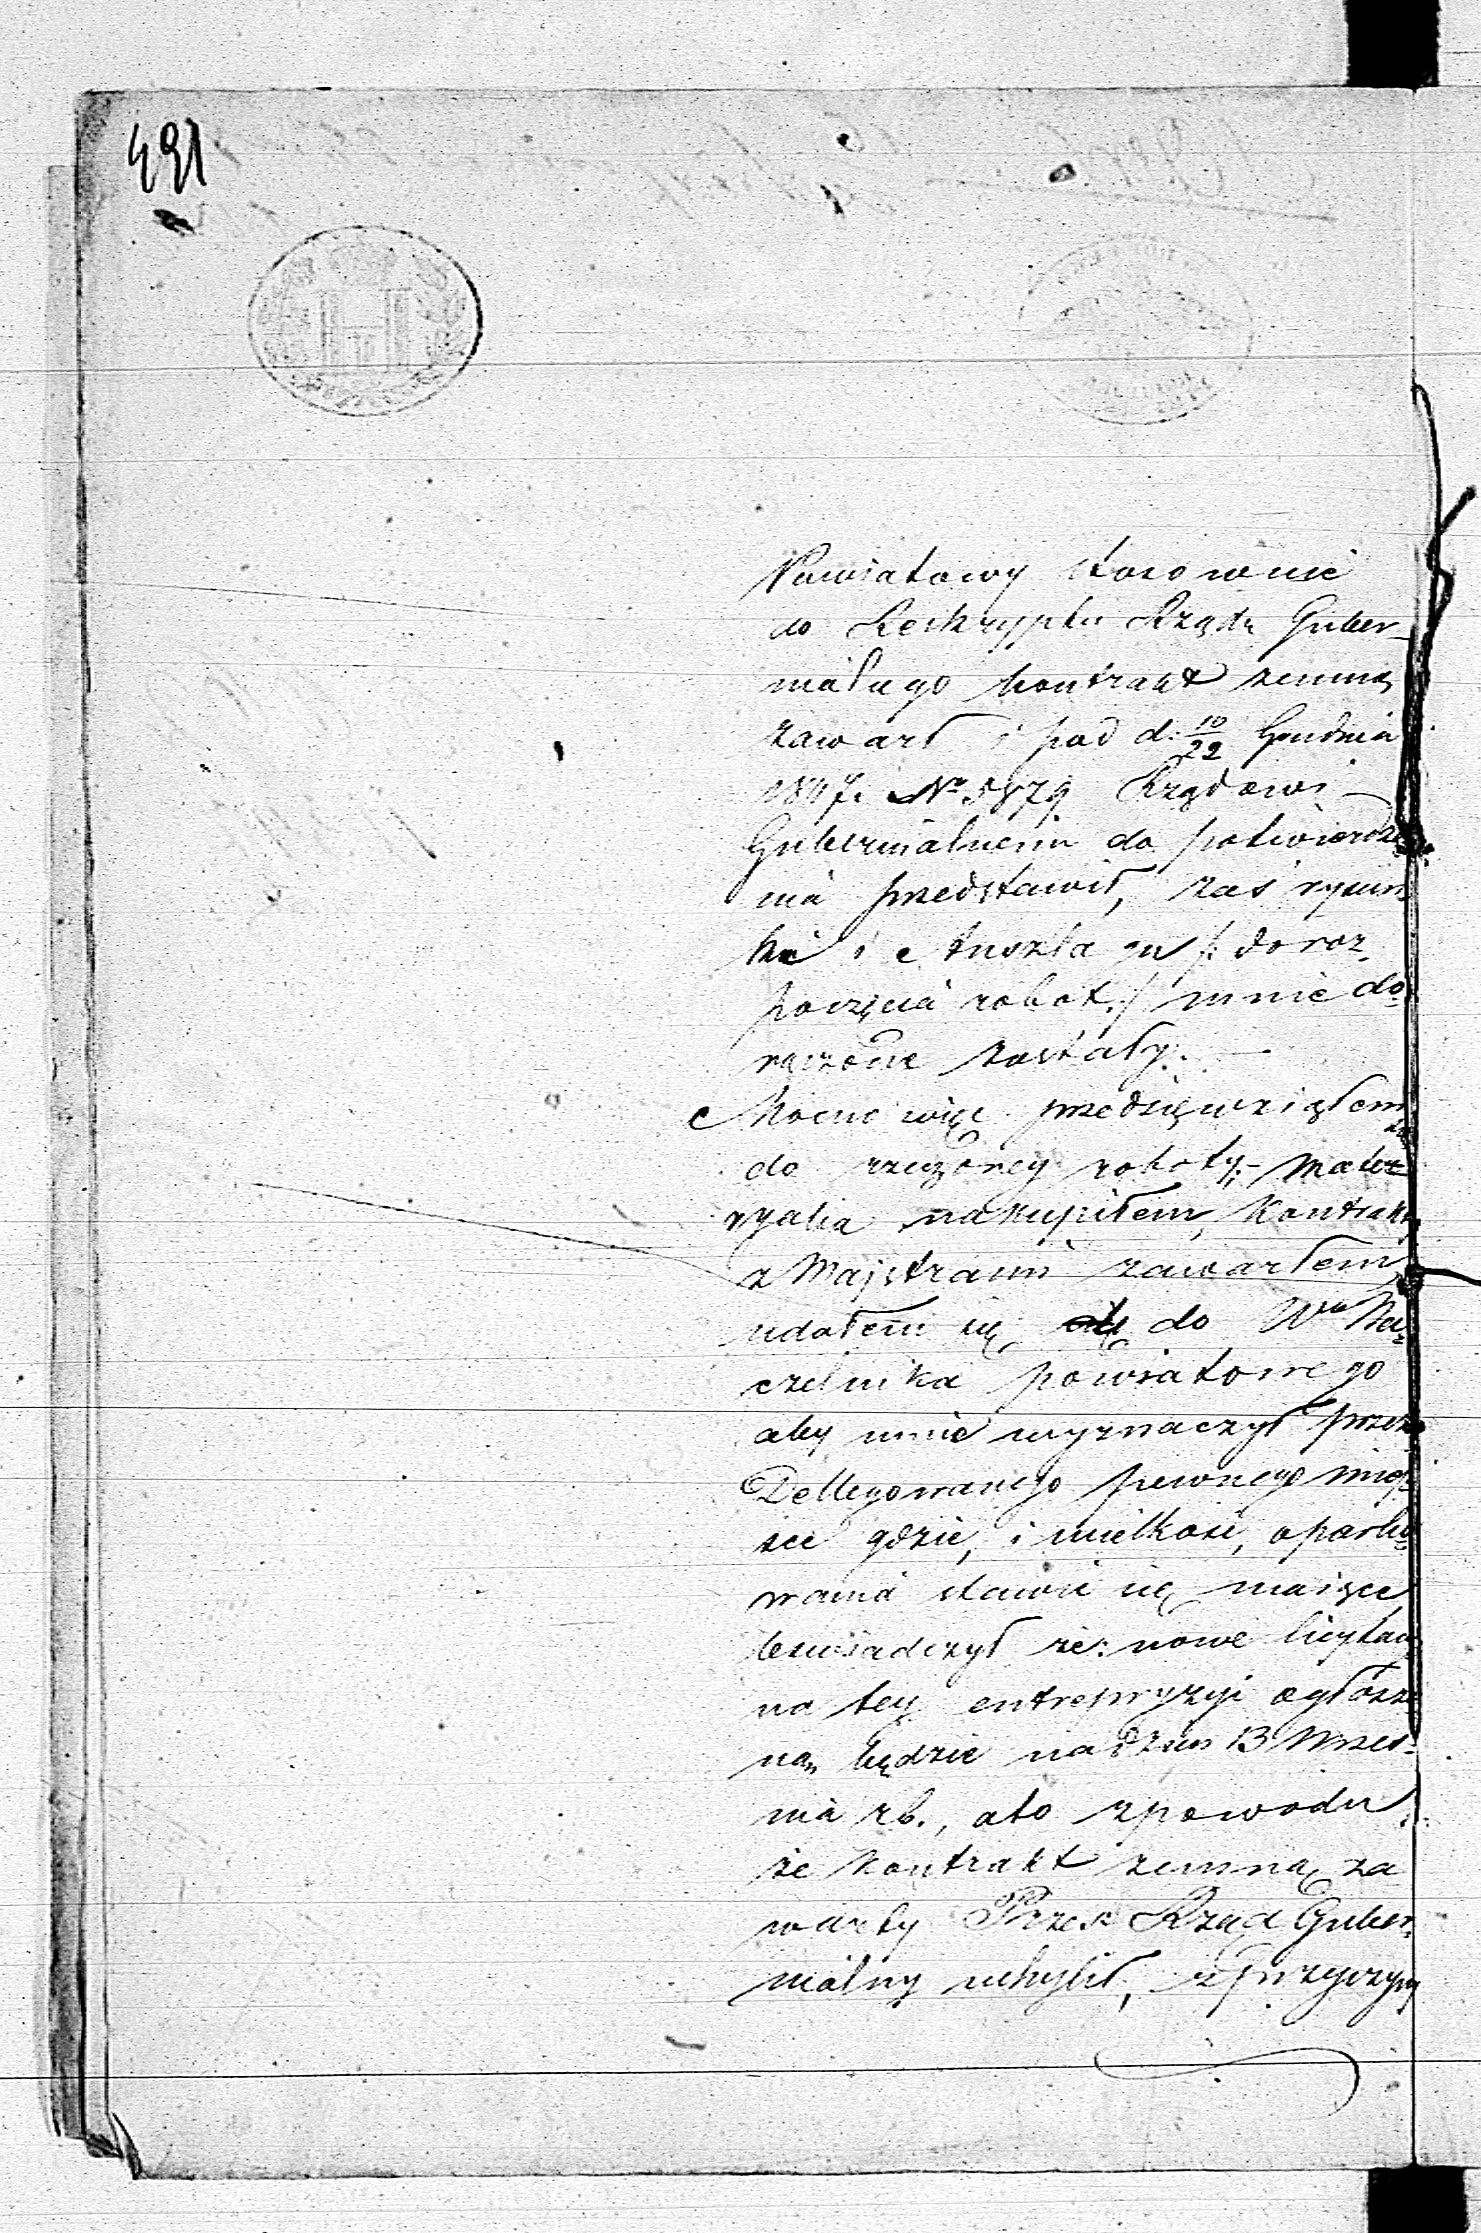 491
Powiatowy stosownie
do Reskryptu Rządu Guber-
nialnego kontrakt zemną
zawarł i pod d. 10/22 Grudnia
1847. No 5879 Rządowi
Gubernialnemu do potwierdze
nia przedstawił, zaś rysun-
ki i Anszlagi /: do roz-
poczęcia robot :/ mnie do-
ręczone zostały. —
Mocno więc przedsięwziąłem
do rzeczoney roboty, - mater
ryalia nakupiłem, kontrakt
z Majstrami zawarłem
udałem się do Wo Na-
czelnika powiatowego
aby mnie wyznaczył przez
Dellegowanego pewnego miej-
sce gdzie, i wielkość, oparko-
wania stawić się maiące,
oswiadczył że: nowe licytacy
na tey entrepryzyi ogłosze
ną będzie na dzień 13 Wrześ-
nia rb., ato zpowodu
że kontrakt zemną za
warty Przez Rząd Guber-
nialny uchylił, z przyczyny